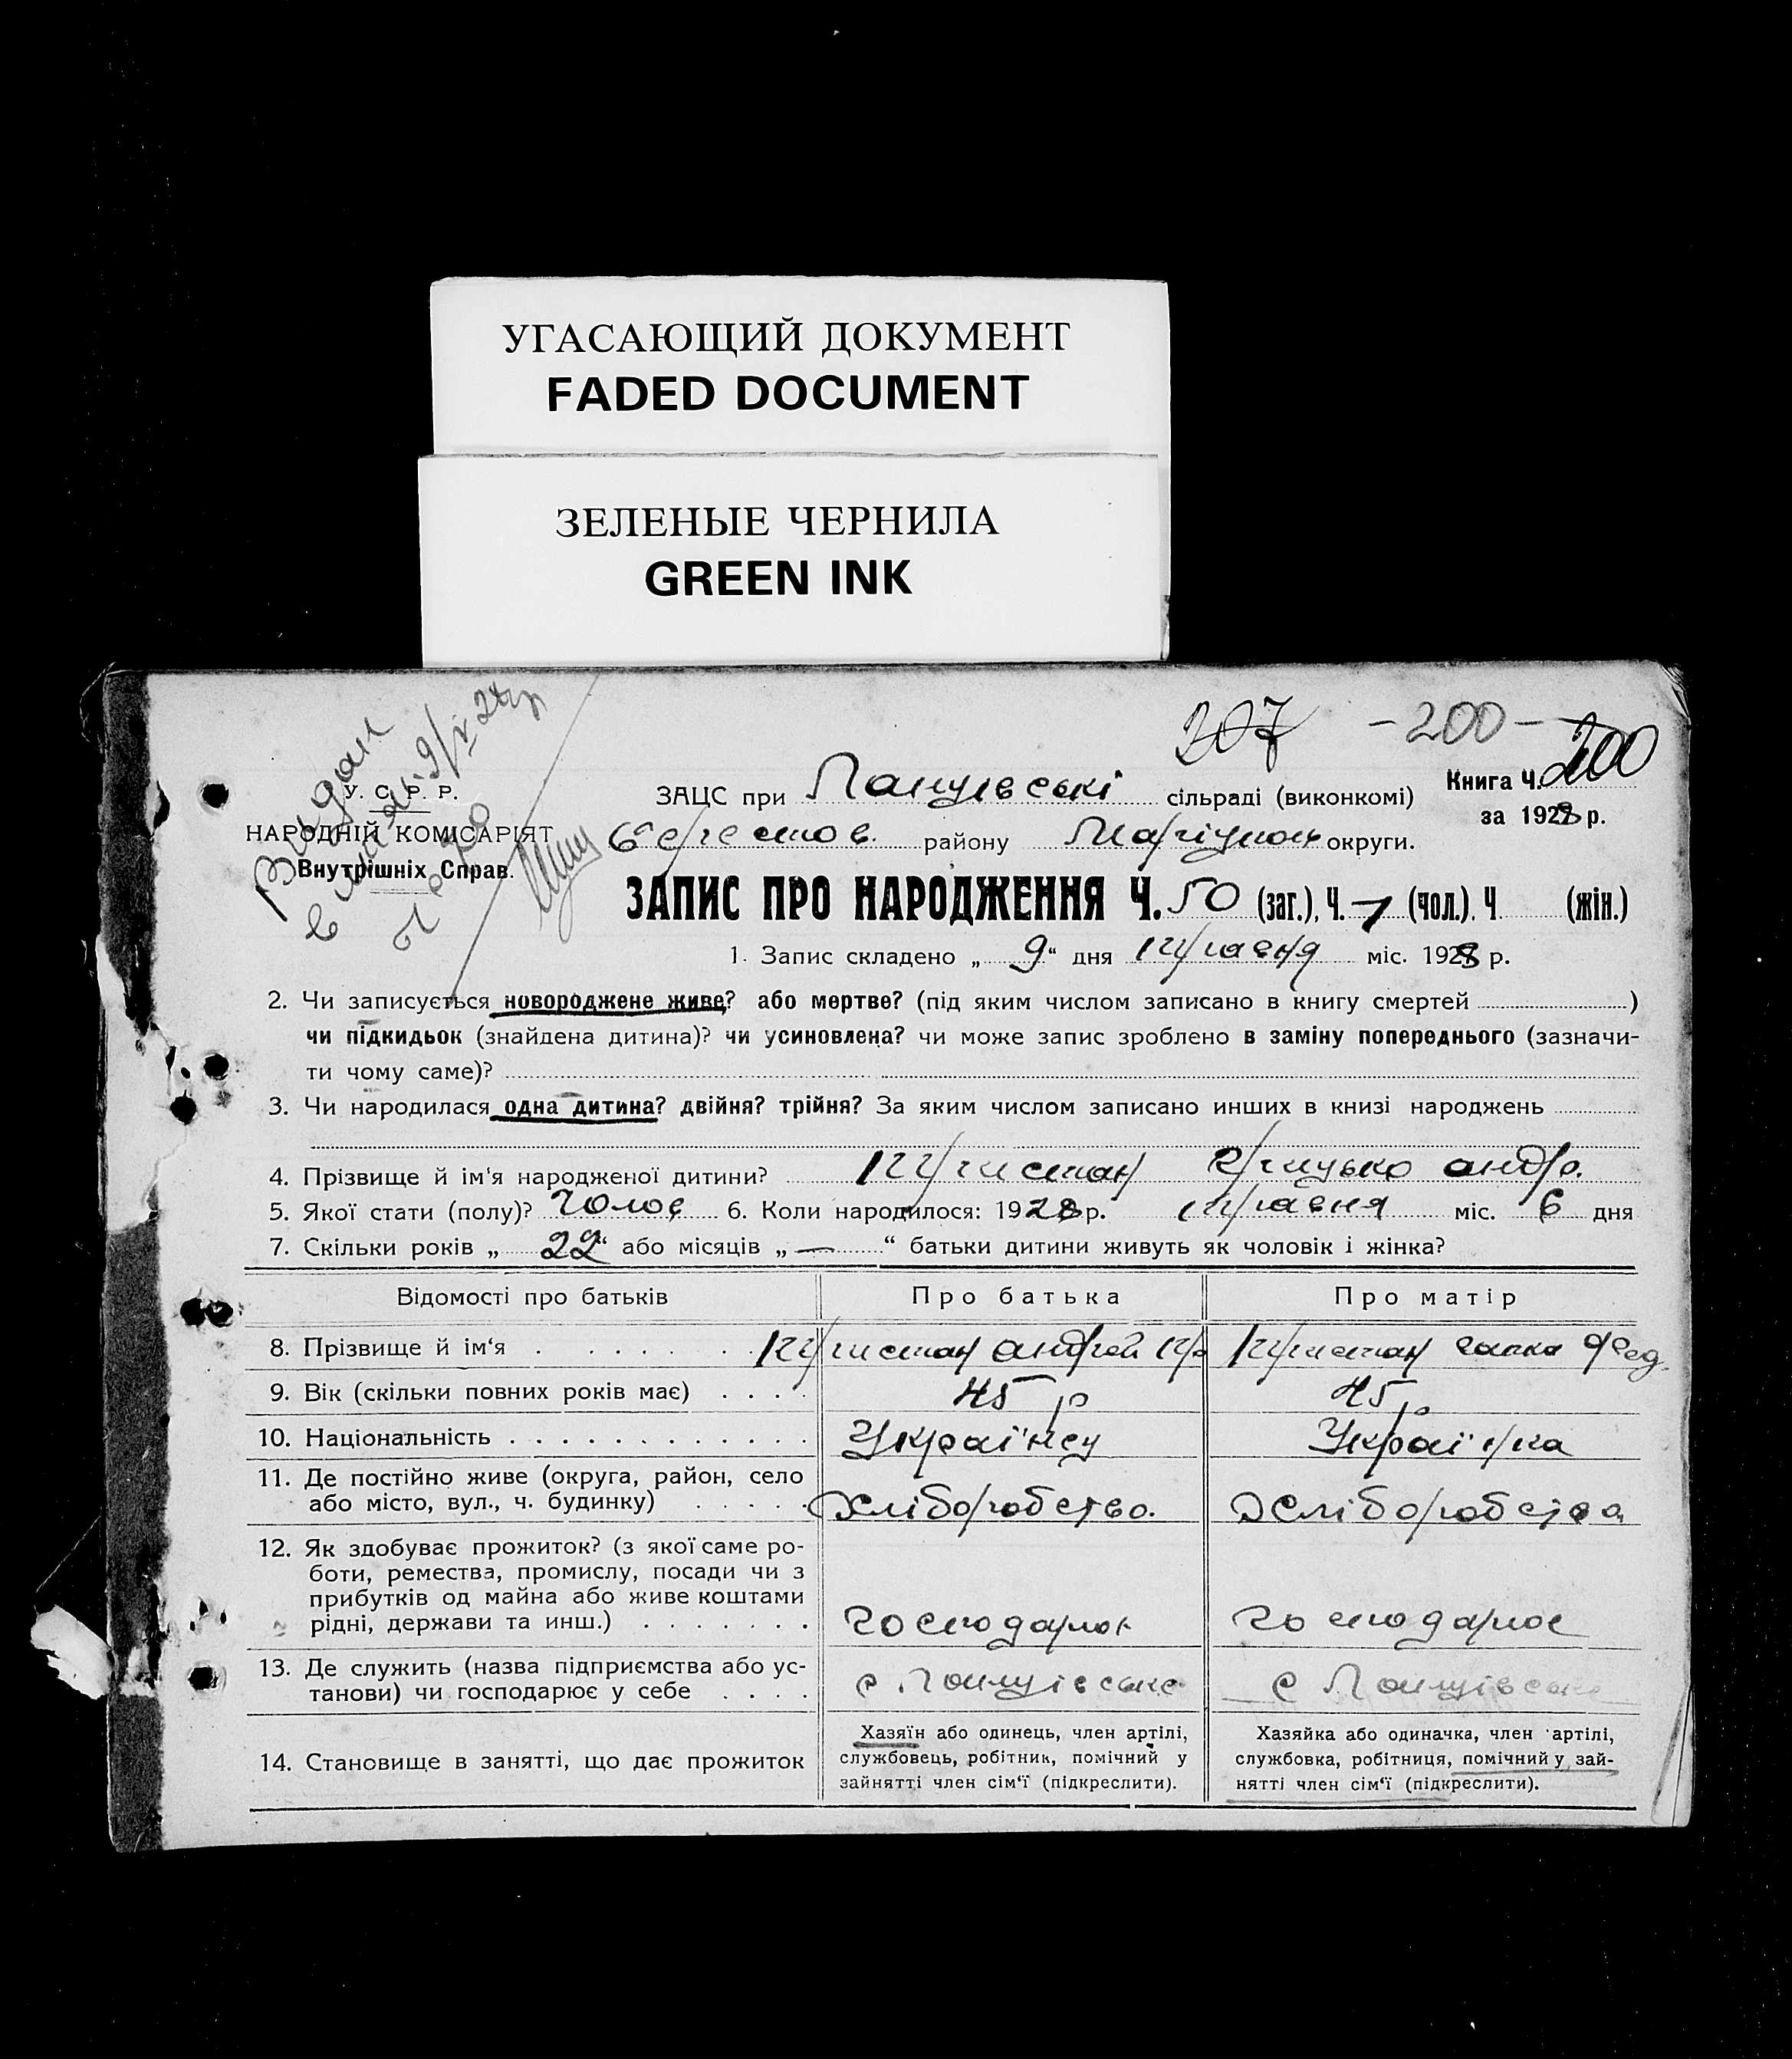 УГАСАЮЩИЙ ДОКУМЕНТ
FADED DOCUMENT
ЗЕЛЕНЫЕ ЧЕРНИЛА
GREEN INK
207 - 200 - 200
У. С. Р. Р.
НАРОДНІЙ КОМІСАРІЯТ
Внутрішніх Справ.
Видан
ЗАЦС при сільраді (виконкомі) Книга Ч. 200
за 1928 р.
Берестов. району Маріупол округи.
ЗАПИС ПРО НАРОДЖЕННЯ Ч. 50 (заг.), Ч. (чол.). Ч (жін.)
1. Запис складено „ 9 “ дня травня міс. 1928 р.
2. Чи записується новороджене живе? або мертве? (під яким числом записано в книгу смертей )
чи підкидьок (знайдена дитина)? чи усиновлена? чи може запис зроблено в заміну попереднього (зазначи-
ти чому саме)?
3. Чи народилася одна дитина? двійня? трійня? За яким числом записано инших в книзі народжень
4. Прізвище й ім‘я народженої дитини? Тристан Грицько Андр.
5. Якої стати (полу)? Чолов 6. Коли народилося: 1928 р. травня міс. 6 дня
7. Скільки років „ 22 “ або місяців „ — “ батьки дитини живуть як чоловік і жінка?
Відомості про батьків Про батька Про матір
8. Прізвище й ім‘я Тристан Андрей Тристан Фед.
9. Вік (скільки повних років має) 45 р 45 р
10. Національність Українец Українка
11. Де постійно живе (округа, район, село
або місто, вул., ч. будинку) Хліборобство. Хліборобства
12. Як здобуває прожиток? (з якої саме ро-
боти, ремества, промислу, посади чи з
прибутків од майна або живе коштами
рідні, держави та инш.)
13. Де служить (назва підприємства або ус-
танови) чи господарює у себе
14. Становище в занятті, що дає прожиток
Хазяїн або одинець, член артілі,
службовець, робітник, помічний у
зайнятті член сім‘ї (підкреслити).
Хазяйка або одиначка, член артілі,
службовка, робітниця, помічний у зай-
нятті член сім‘ї (підкреслити).